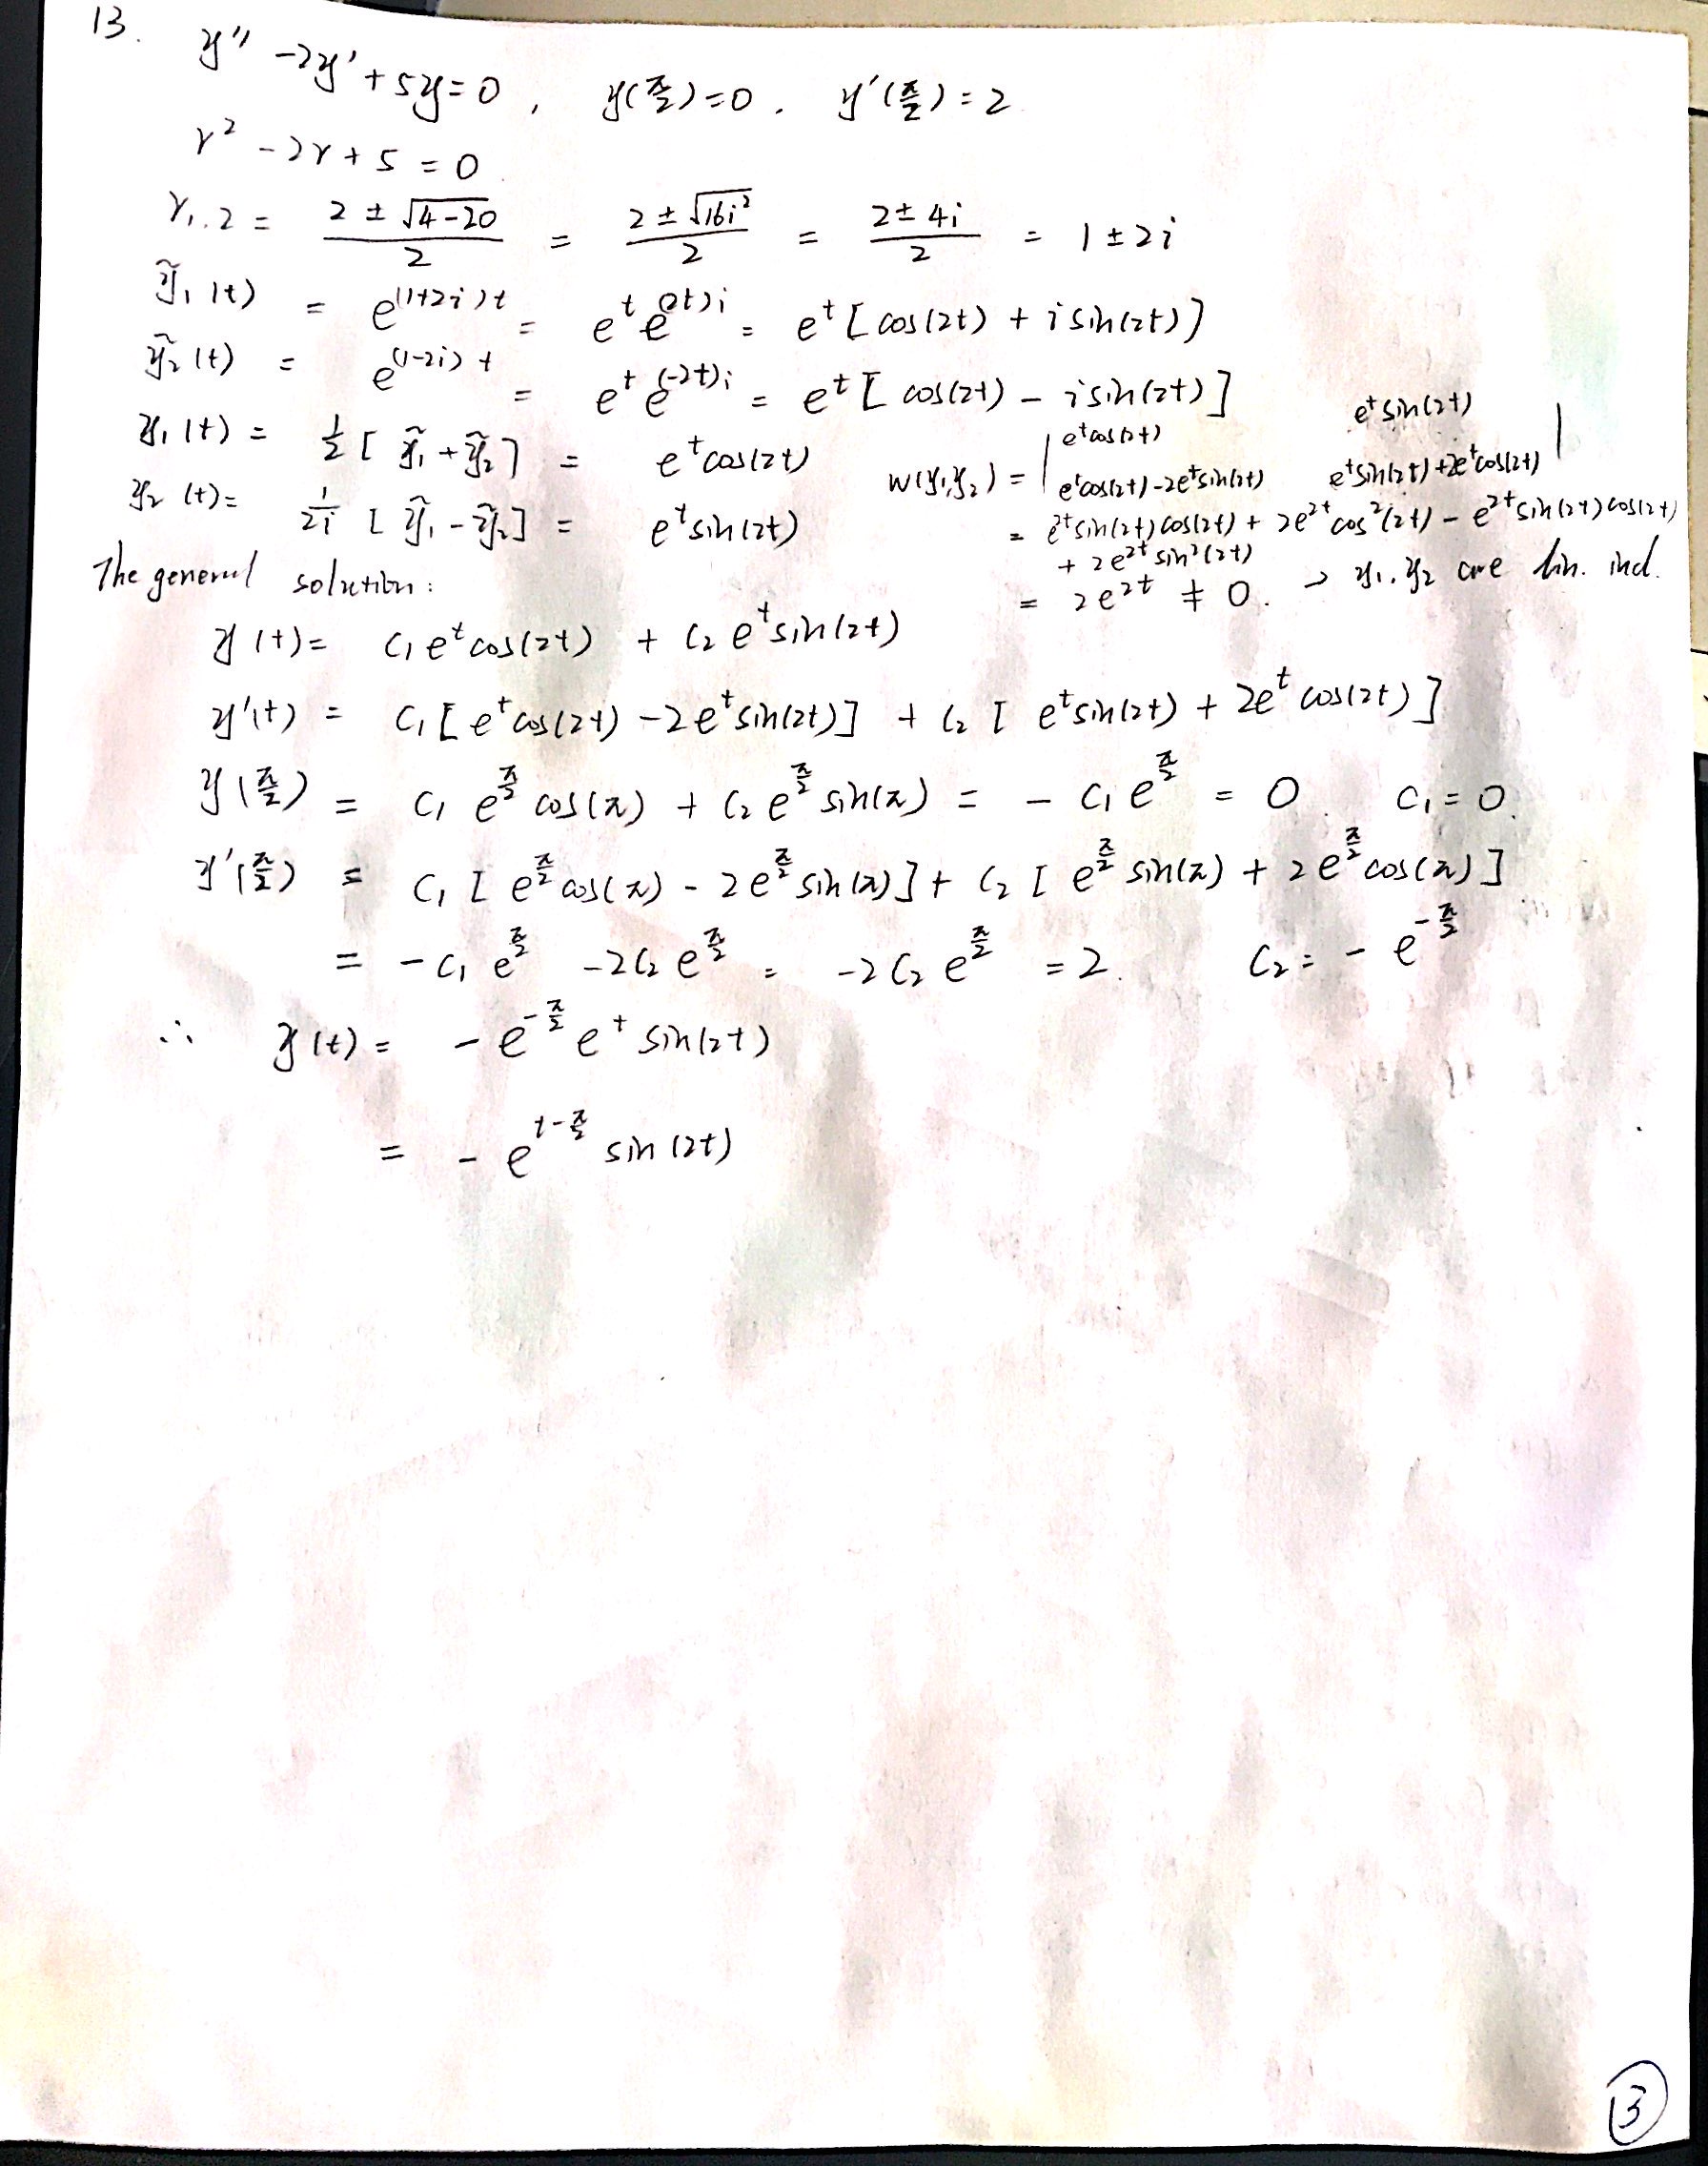 13. y'' -2y' + 5y = 0 , y(π/2) = 0 . y'(π/2) = 2
r² - 2r + 5 = 0
r₁.₂ = (2 ± √(4-20))/2 = (2 ± √(16i²))/2 = (2 ± 4i)/2 = 1 ± 2i
ỹ₁(t) = e^((1+2i)t) = e^t e^((2t)i) = e^t [cos(2t) + i sin(2t)]
ỹ₂(t) = e^((1-2i)t) = e^t e^((-2t)i) = e^t [cos(2t) - i sin(2t)]
y₁(t) = 1/2 [ỹ₁ + ỹ₂] = e^t cos(2t)
y₂(t) = 1/(2i) [ỹ₁ - ỹ₂] = e^t sin(2t)
W(y₁,y₂) = | e^t cos(2t) e^t sin(2t) |
e^t cos(2t) - 2e^t sin(2t) e^t sin(2t) + 2e^t cos(2t)
= e^(2t) sin(2t) cos(2t) + 2e^(2t) cos²(2t) - e^(2t) sin(2t) cos(2t)
+ 2e^(2t) sin²(2t)
= 2e^(2t) ≠ 0. → y₁, y₂ are lin. ind.
The general solution:
y(t) = c₁e^t cos(2t) + c₂ e^t sin(2t)
y'(t) = c₁[e^t cos(2t) - 2e^t sin(2t)] + c₂ [e^t sin(2t) + 2e^t cos(2t)]
y(π/2) = c₁ e^(π/2) cos(π) + c₂ e^(π/2) sin(π) = - c₁ e^(π/2) = 0. c₁ = 0.
y'(π/2) = c₁ [e^(π/2) cos(π) - 2e^(π/2) sin(π)] + c₂ [e^(π/2) sin(π) + 2e^(π/2) cos(π)]
= -c₁ e^(π/2) - 2c₂ e^(π/2) = -2c₂ e^(π/2) = 2. c₂ = - e^(-π/2)
∴ y(t) = - e^(-π/2) e^t sin(2t)
= - e^(t-π/2) sin(2t)
13